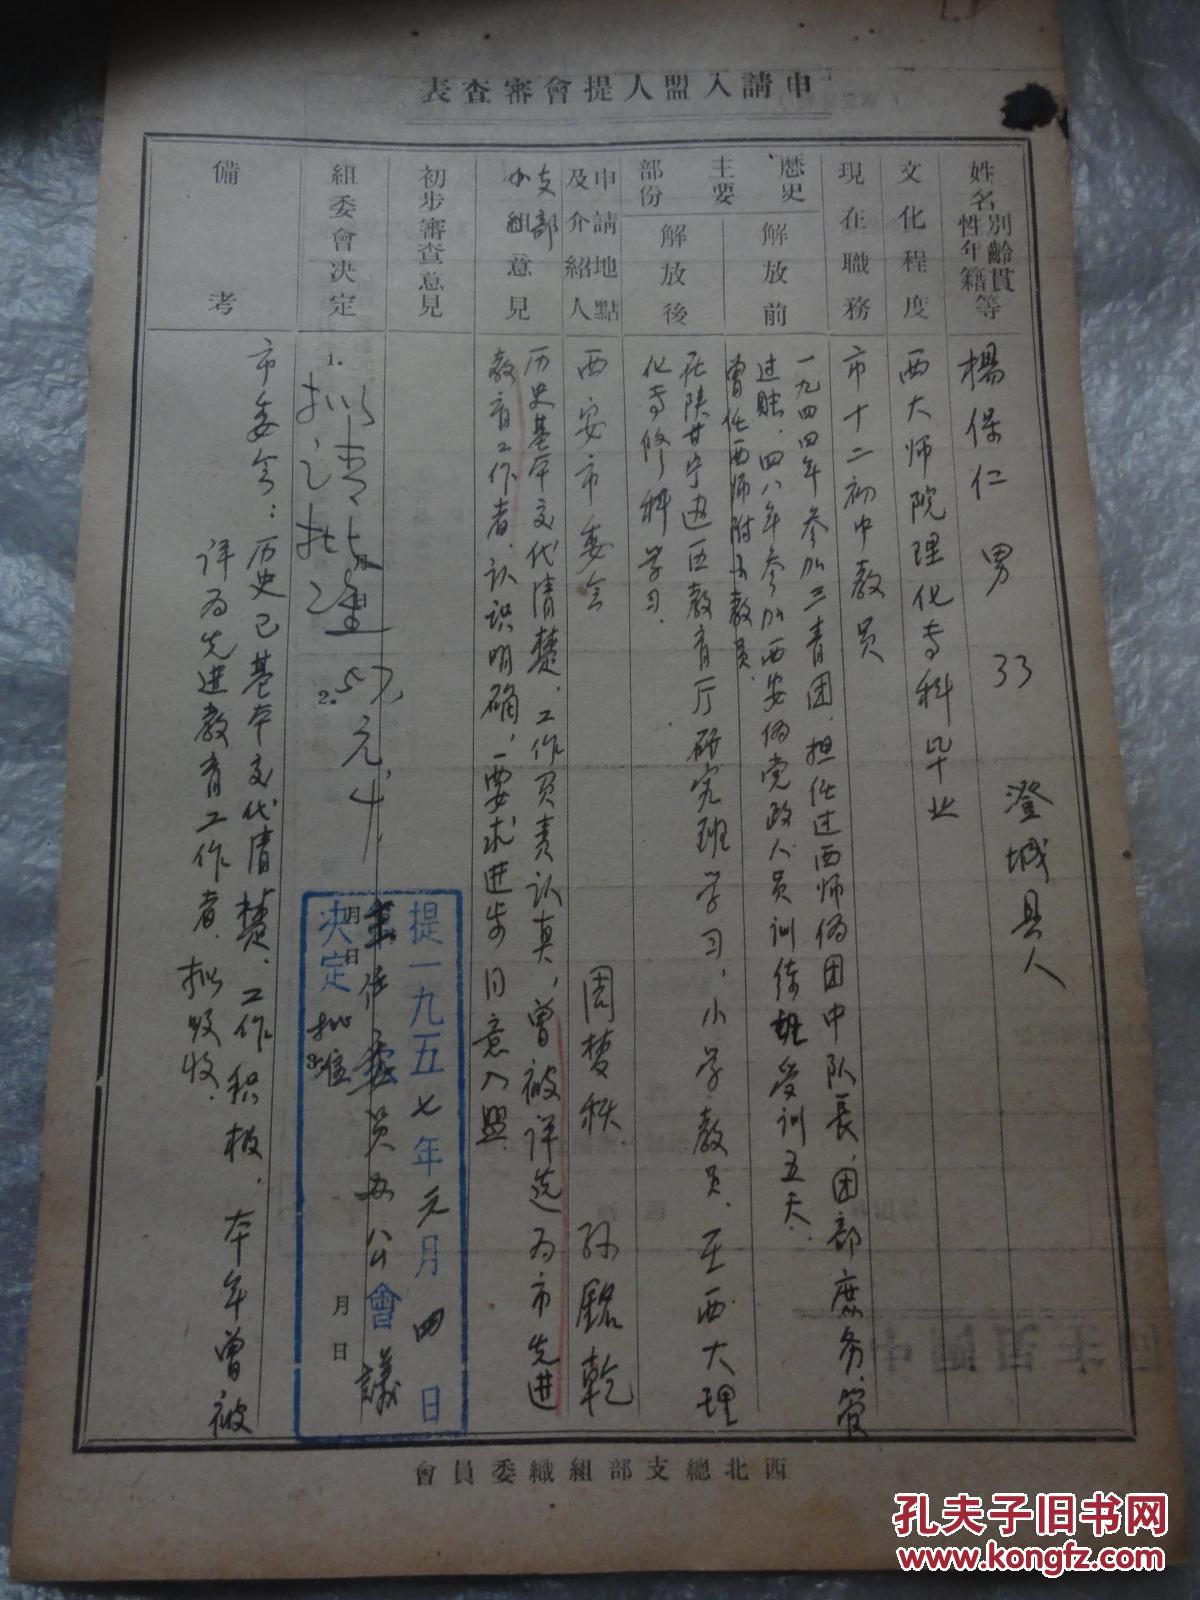 申請入盟人提會審查表
姓名性別年齡籍貫等
楊保仁 男 33 澄城县人
文化程度
西大师院理化专科毕业
現在職務
市十二初中教员
歷史主要部份
解放前
一九四四年参加三青团，担任过西师伪团中队长，团部庶务，管
过賬，四八年参加西安伪党政人员训练班受训五天．
曾任西师附小教员．
解放後
在陕甘宁边区教育厅研究班学习，小学教员．至西大理
化专修科学习．
申請地點及介紹人
西安市委会 周楚秩． 孙銘乾
支部小組意見
历史基本交代清楚．工作负责认真，曾被评选为市先进
教育工作者．认识明确，要求进步同意入盟
初步審查意見
組委會決定
1.
拟请批准
月 日
2.
57.元.4
提一九五七年元月四日
主任委員办公會議
決定批准
月 日
3.
月 日
備考
市委会：历史已基本交代清楚．工作积极．本年曾被
评为先进教育工作者．拟吸收．
西北總支部組織委員會
孔夫子旧书网
www.kongfz.com